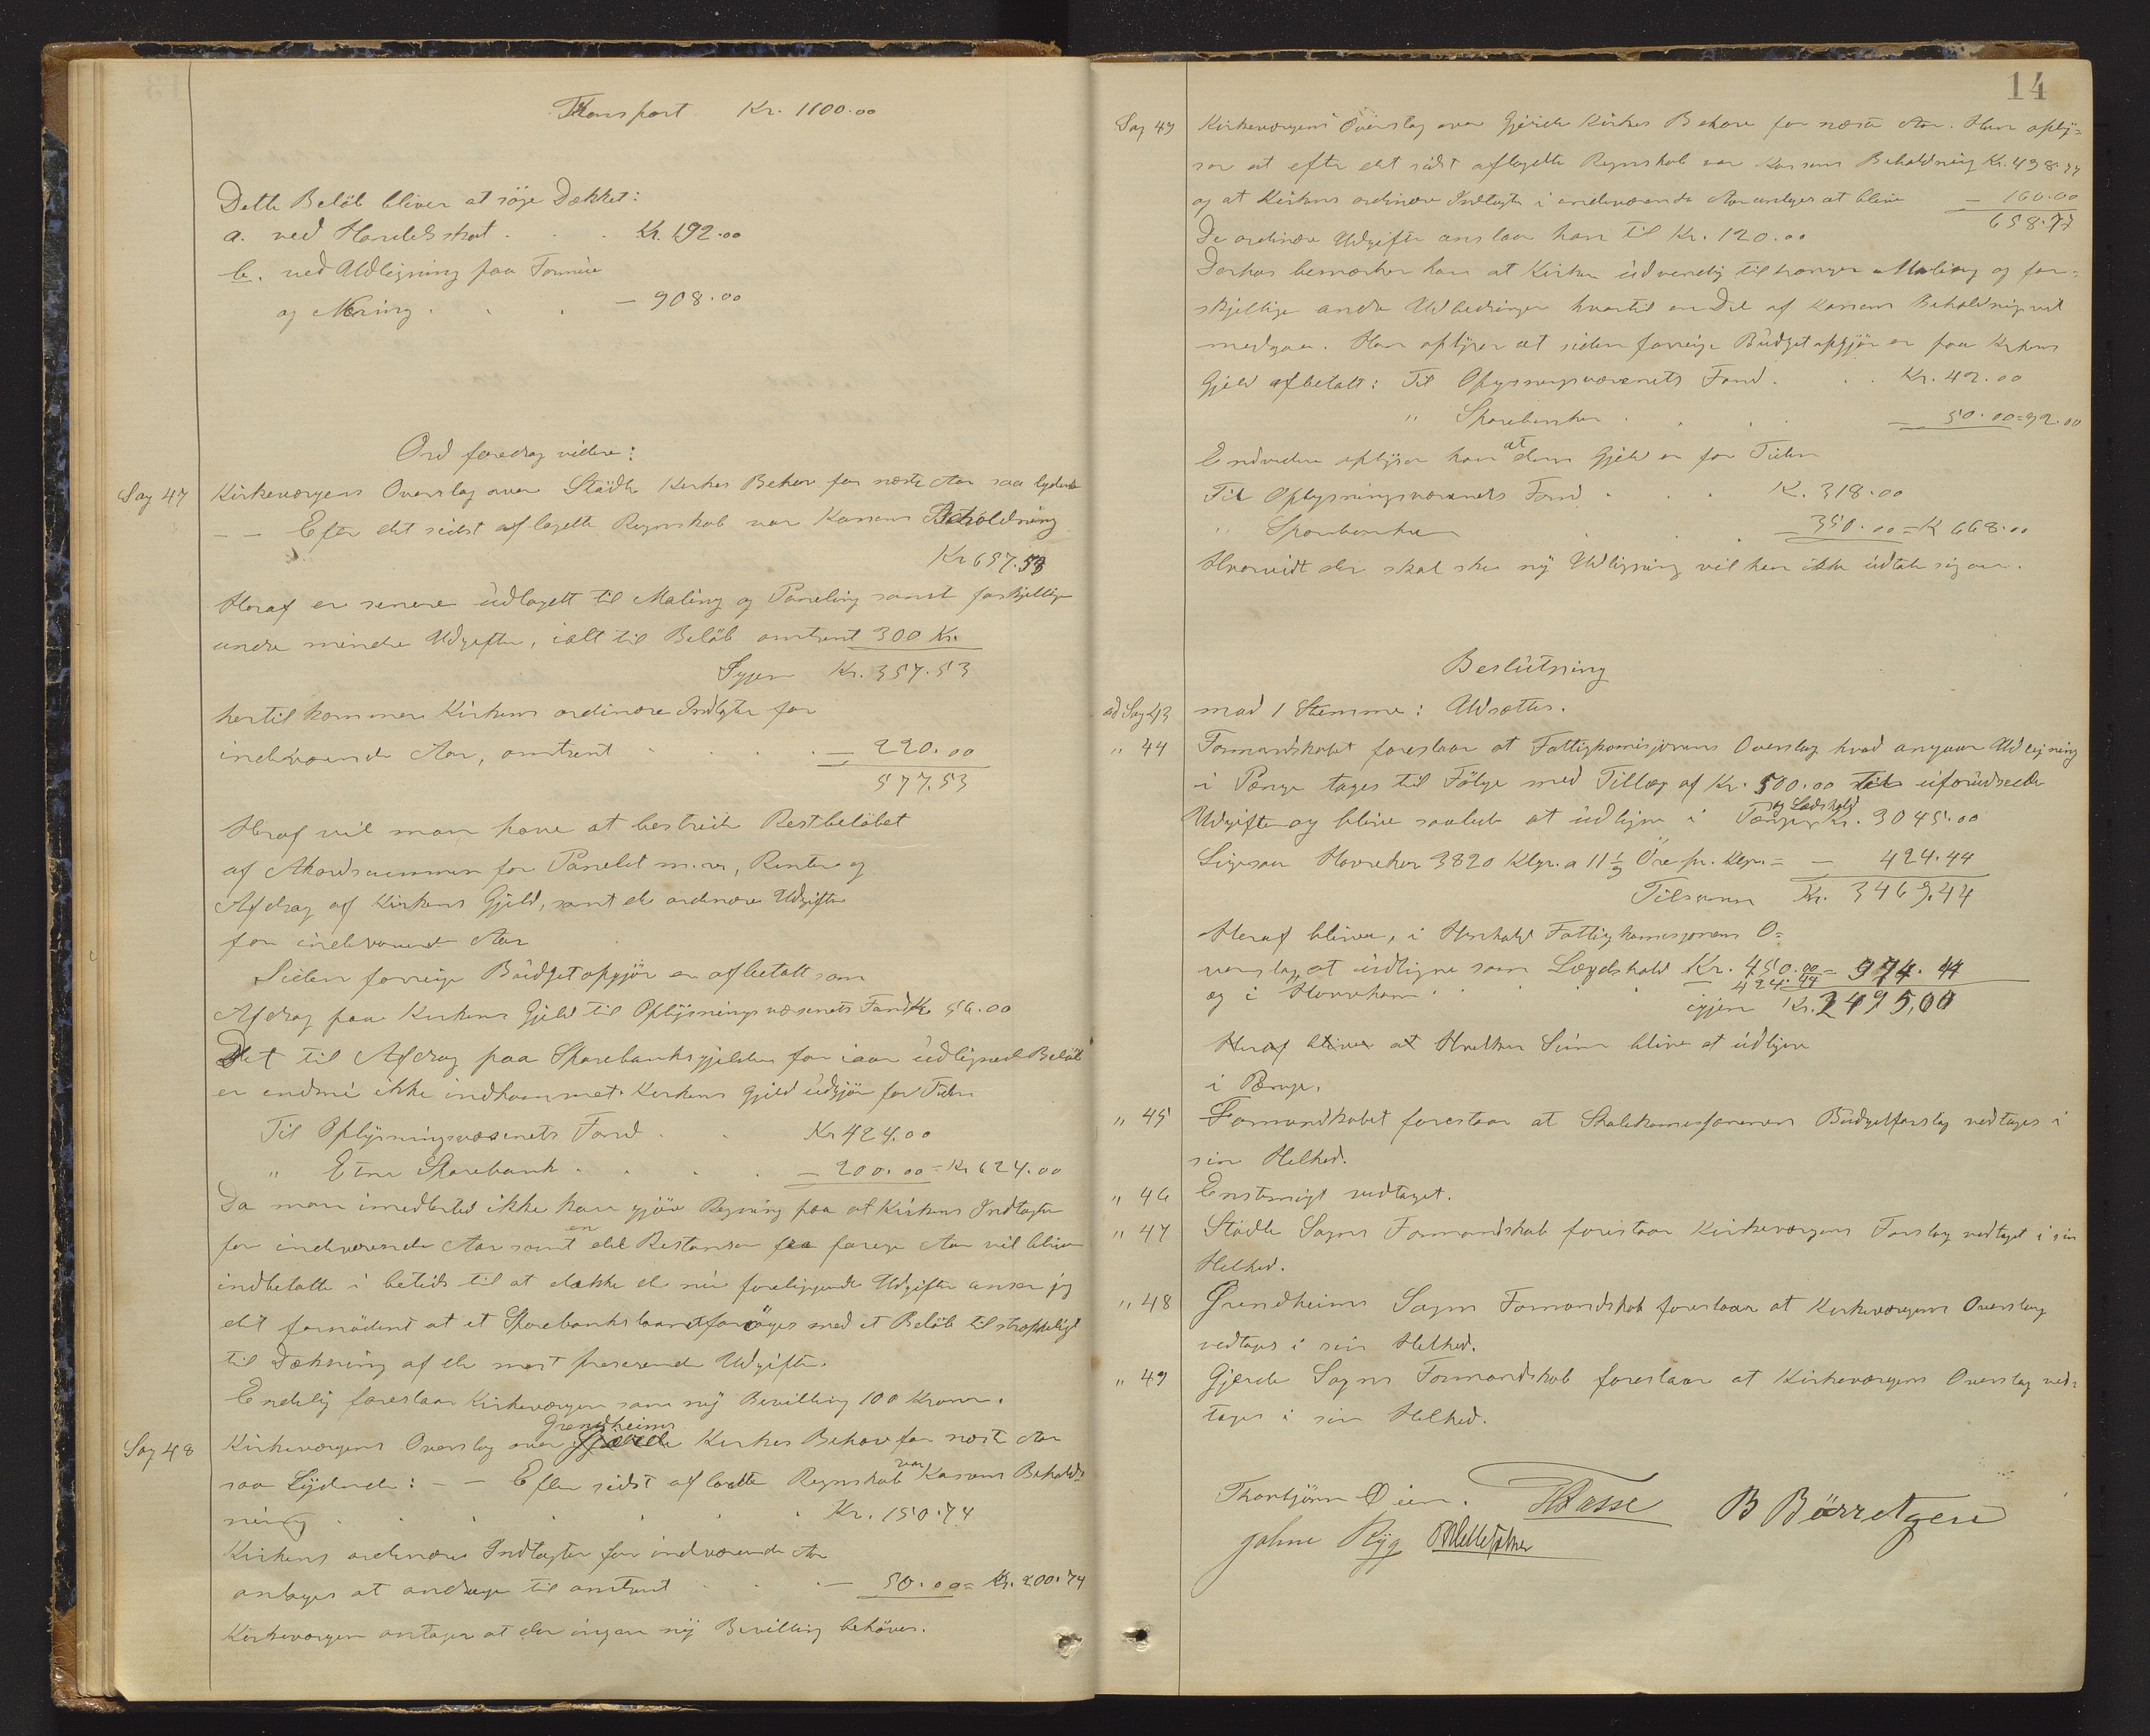 Transport Kr. 1100.00
Dette Beløb bliver at søge Dækket:
a. ved Handelsskat . . . Kr. 192.00
b. ved Udligning paa Formue
og Næring . . . — 908.00
Ord foredrog videre:
Sag 47 Kirkeværgens Overslag over Stødle Kirkes Behov for næste Aar saa lydende
— — Efter det sidst aflagte Regnskab var Kassens Beholdning
Kr 657.53
Heraf er senere udlagt til Maling og Paneling samt forskjellige
andre mindre Udgifter, ialt til Beløb omtrent 300 Kr.
Igjen Kr. 357.53
hertil kommer Kirkens ordinære Indtægter for
indeværende Aar, omtrent . . . — 220.00
577.53
Heraf vil man have at bestride Restbeløbet
af Akordsummen for Panelet m.v., Renter og
Afdrag af Kirkens Gjeld, samt de ordinære Udgifter
for indeværende Aar
Siden forrige Budgetopgjør er afbetalt som
Afdrag paa Kirkens Gjeld til Oplysningsvæsenets Fand Kr 56.00
Det til Afdrag paa Sparebanksgjelden for iaar udlignede Beløb
er endnu ikke indkommet. Kirkens gjeld udgjør for Tiden
Til Oplysningsvæsenets Fond . . Kr 424.00
" Etne Sparebank . . . . — 200.00 = Kr 624.00
Da man imidlertid ikke kan gjøre Regning paa at Kirkens Indtægter
for indeværende Aar samt en del Restanser fra forrige Aar vil blive
indbetalte i betids til at dække de nu foreliggende Udgifter anser jeg
det fornødent at et Sparebankslaanet forøges med et Beløb tilstrækkeligt
til Dækning af de mest presserende Udgifter.
Endelig foreslaar Kirkeværgen som ny Bevilling 100 Kroner.
Grendheims
Sag 48 Kirkeværgens Overslag over Kirkes Behov for næste Aar
saa Lydende: — — Efter sidst aflagte Regnskab var Kassens Behold-
ning . . . . . . Kr. 150.74
Kirkens ordinære Indtægter for indværende Aar
antages at andrage til omtrent . . . — 50.00 = Kr. 200.74
Kirkeværgen antager at der ingen ny Bevilling behøves.
14
Sag 49 Kirkeværgens Overslag over Gjerde Kirkes Behov for næste Aar. Han oply-
ser at efter det sidst aflagte Regnskab var Kassens Beholdning Kr. 498.77
og at Kirkens ordinære Indtægter i indeværende Aar antages at blive — 160.00
658.77
De ordinære Udgifter anslaar han til Kr. 120.00
Derhos bemærker han at Kirken udvendig tiltrænger Maling og for-
skjellige andre Udbedringer hvortil en Del af Kassens Beholdning vil
medgaa. Han oplyser at siden forrige Budgetopgjør er paa Kirkens
Gjeld afbetalt: Til Oplysningsvæsenets Fond . . . Kr. 42.00
" Sparebanken . . . — 50.00 = 92.00
Endvidere oplyser han at dens Gjeld er for Tiden
Til Oplysningsvæsenets Fond . . . K. 318.00
" Sparebanken . . — 350.00 = K 668.00
Hvorvidt der skal ske ny Udligning vil han ikke udtale sig om.
Beslutning
ad Sag 43 mod 1 Stemme: Udsættes.
" 44 Formandskabet foreslaar at Fattigkomisjonens Overslag hvad angaar Udligning
i Penge tages til Følge med Tillæg af Kr. 500.00 til uforudseede
og Lædshold
Udgifter og blive saaledes at udligne i Penge Kr. 3045.00
Ligesaa Havrekorn 3820 Klgr. a 11 1/9 Øre pr. Klgr. = — 424.44
Tilsammen Kr. 3469.44
Heraf bliver, i Henhold Fattigkomisjonens O-
verslag, at udligne som Lægdshold Kr. 450.00 = 974.44
og i Havrekorn . . . — 424.44
igjen Kr. 2495,00
Heraf bliver at Hvilken Sum bliver at udligne
i Penge.
" 45 Formandskabet foreslaar at Skolekomisjonens Budgetforslag vedtages i
sin Helhed.
" 46 Enstemigt vedtaget.
" 47 Stødle Sogns Formandskab foreslaar Kirkeværgens Forslag vedtaget i sin
Helhed.
" 48 Grendheims Sogns Formandskab foreslaar at Kirkeværgens Overslag
vedtages i sin Helhed.
" 49 Gjerde Sogns Formandskab foreslaar at Kirkeværgens Overslag ved-
tages i sin Helhed.
Thorbjørn Øien. B Børretzen
Johne Ryg